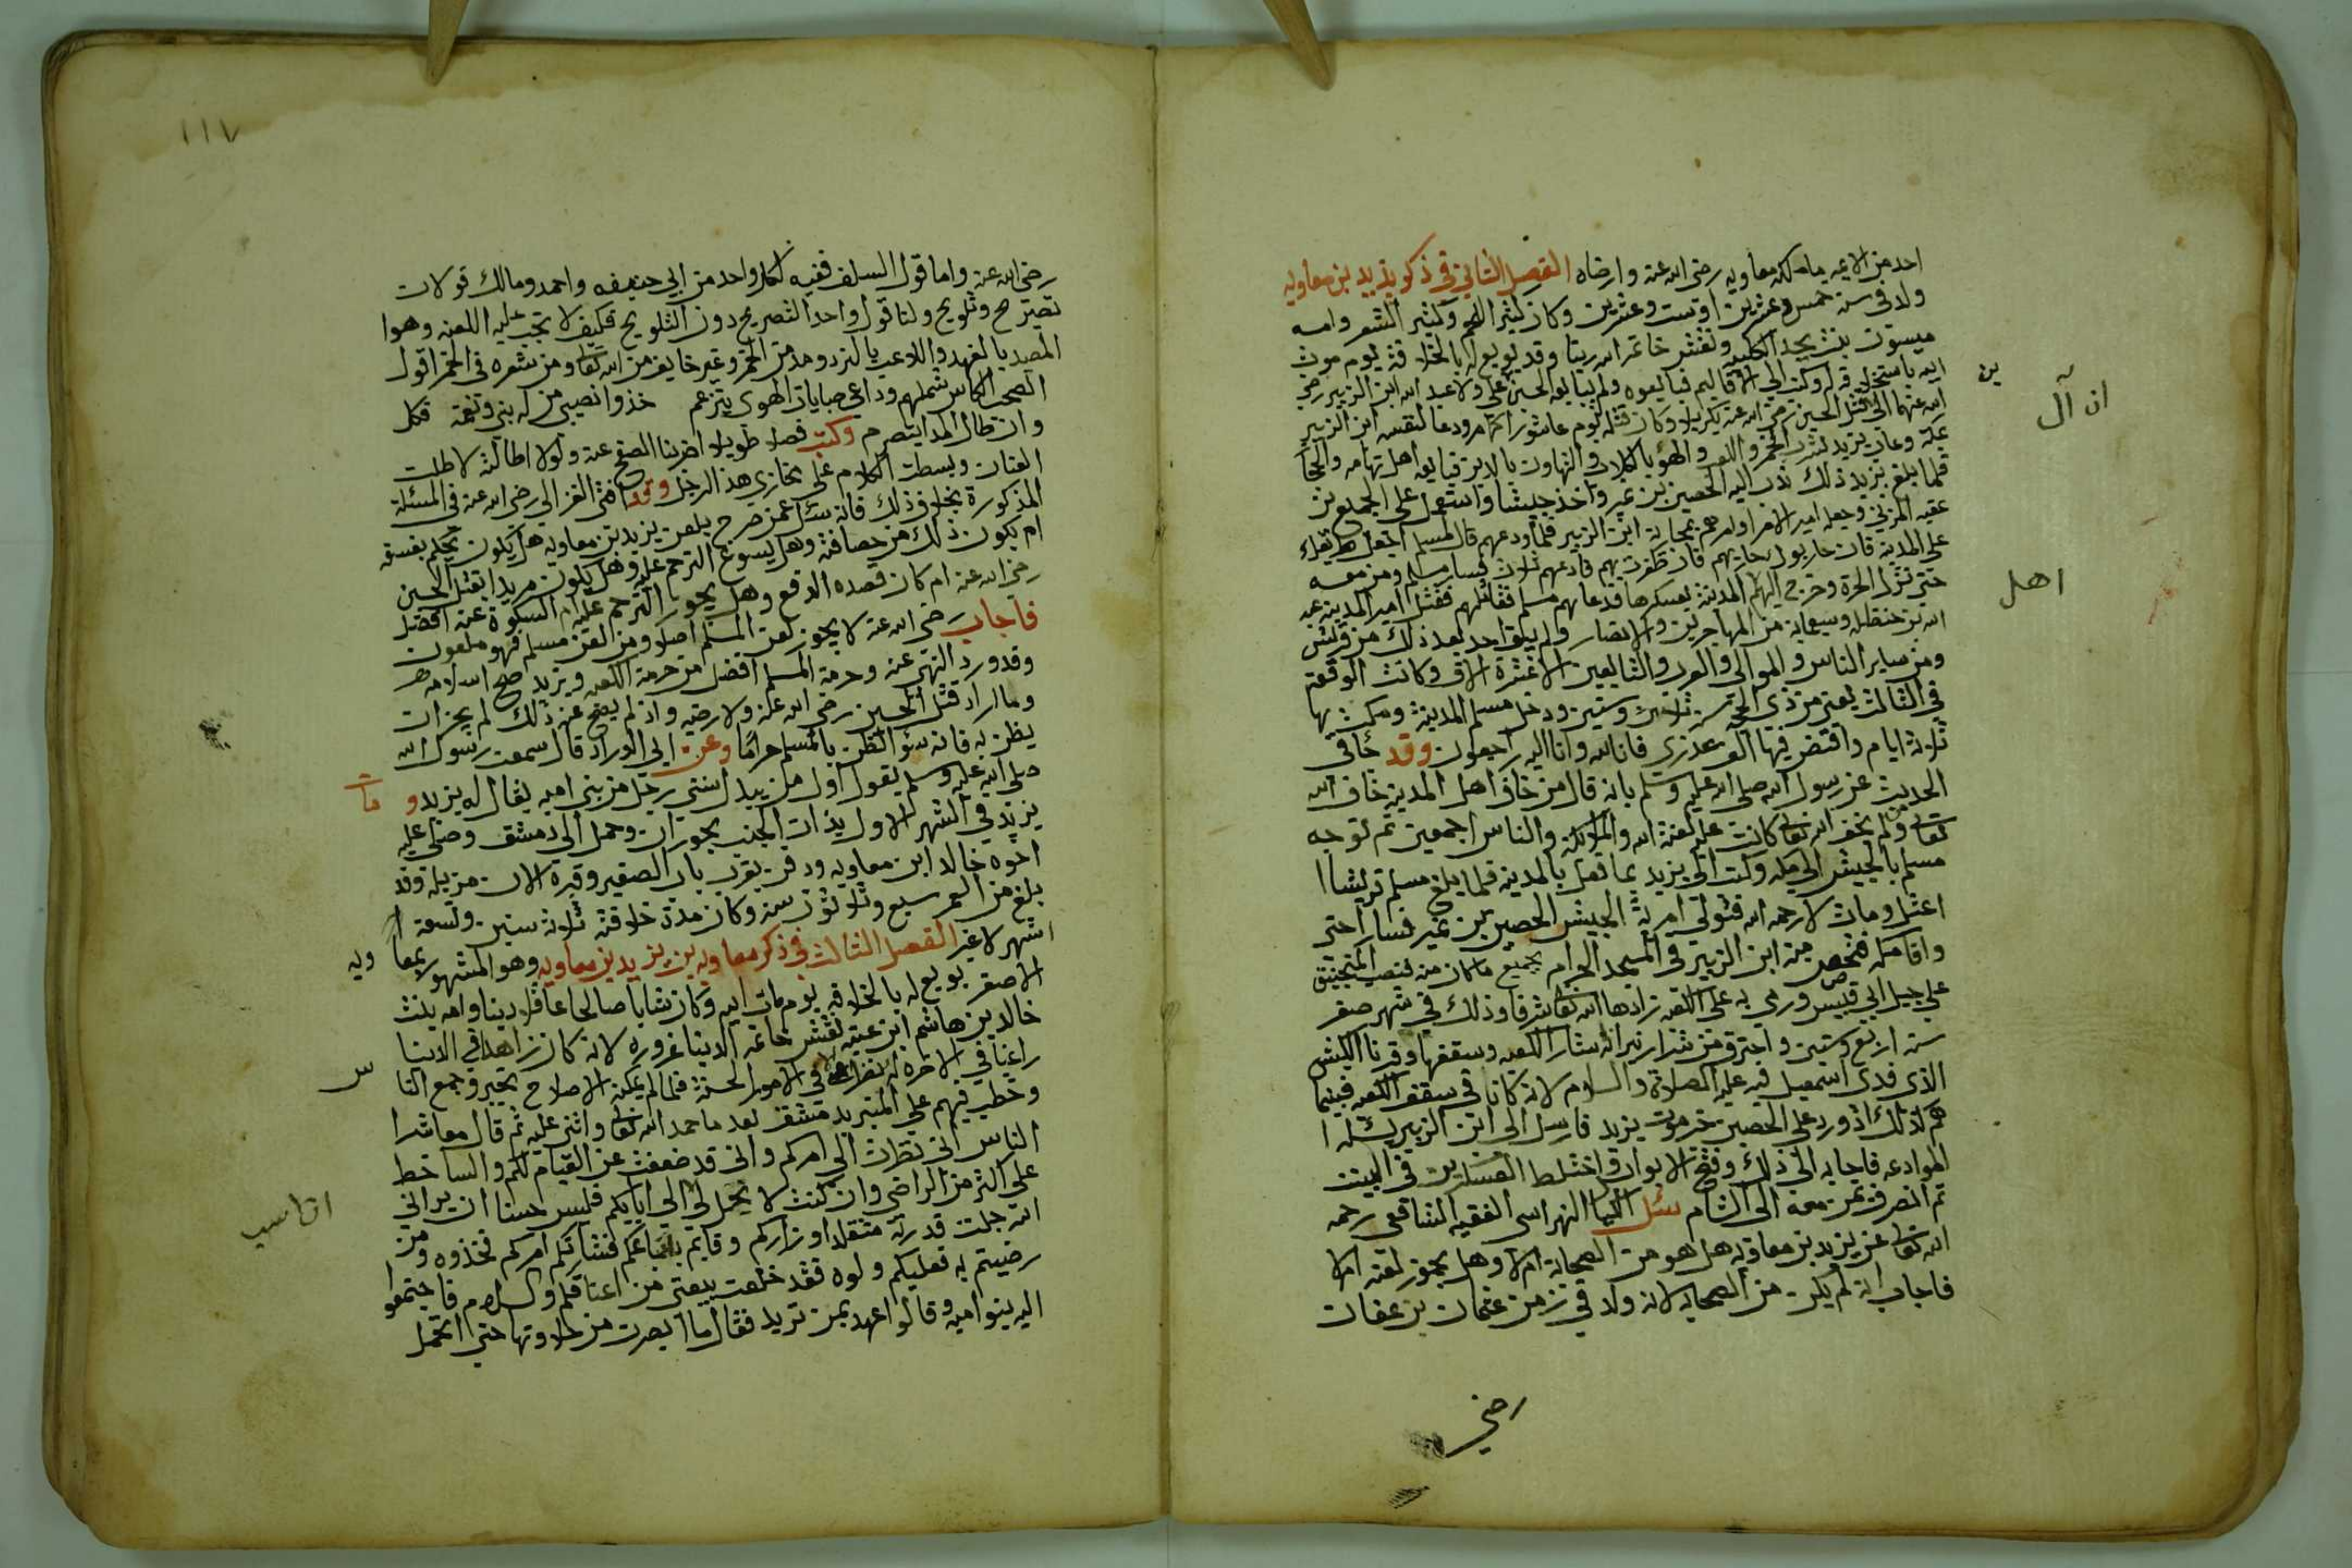 احد من الايمه ما ملكه معاويه رضي الله عنه وارضاه الفصل الثاني في ذكر يزيد بن معاويه
ولد في سنة خمس وعشرين او ست وعشرين وكان كثير اللحم وكثير الشعر وامه
ميسون بنت بحدل الكلبيه ونقش خاتمه الله ربنا وقد بويع له بالخلافة يوم موت
ابيه باستخلافه له وكتب الي الاقاليم فبايعوه ولم يبايعه الحسين بن علي ولا عبد الله ابن الزبير رضي
الله عنهما الي ان قتل الحسين رضي الله عنه بكربلا وكان قتله يوم عاشورا كما مر ودعا لنفسه ابن الزبير
بمكة وعاب يزيد بشرب الخمر واللعب واللهو بالكلاب والتهاون بالدين فبايعه اهل تهامه والحجاز
فلما بلغ يزيد ذلك ندب اليه الحصين بن نمير واخذ جيشا واستعمل علي الجميع بن
عقبه المزني وجعله امير الامرا وامرهم بمحاربة ابن الزبير فلما ودعهم قال لمسلم اجعل طريقك
علي المدينه فان حاربوك فحاربهم فان ظفرت بهم فادعهم ثلاث فسار مسلم ومن معه
حتي نزل الحرة وخرج اليهم اهل المدينة بعسكرها فدعاهم مسلم فقاتلهم فقتل امير المدينه عبد
الله بن حنظله وسبعمايه من المهاجرين والانصار ولم يبق احد بعد ذلك من قريش
ومن ساير الناس والموالي والعرب والتابعين الا عشرة الاف وكانت الوقعه
في الثالث بقين من ذي الحجه سنة ثلاث وستين ودخل مسلم المدينة ومكث بها
ثلاثة ايام وافتض فيها الف عذري فانا لله وانا اليه راجعون وقد جا في
الحديث عن رسول الله صلي الله عليه وسلم بانه قال من خاف اهل المدينه خاف الله
تعالي ومن لم يخف الله تعالي كانت عليه لعنة الله والملايكه والناس اجمعين ثم توجه
مسلم بالجيش الي مكه وكتب الي يزيد بما فعل بالمدينه فلما بلغ مسلم قريشا ا
اعتل ومات لا رحمه الله فتولي امرية الجيش الحصين بن نمير فسار حتي
وافا مكه فتحصن منه ابن الزبير في المسجد الحرام بجميع ما كان منه فنصب المنجنيق
علي جبل ابي قبيس ورمي به علي الكعبه زادها الله تعالي شرفا وذلك في شهر صفر
سنة اربع وستين واحترق من شرار نيرانه ستار الكعبه وسقفها وقرنا الكبش
الذي فدي اسمعيل فيه عليه الصلاة والسلام لانه كانا في سقف الكعبه فبينما
هم كذلك اذ ورد علي الحصين خبر موت يزيد فارسل الي ابن الزبير يسئله ا
لموادعه فاجابه الي ذلك وفتح الابواب واختلط العسكرين في البيت
ثم انصرف بمن معه الي الشام سئل الكيا الهراسي الفقيه الشافعي رحمه
الله تعالي عن يزيد بن معاويه هل هو من الصحابة ام لا وهل يجوز لعنه ام لا
فاجاب انه لم يكن من الصحابه لانه ولد في زمن عثمان بن عفان
رضي
ين
ان آل
اهل
١١٧
رضي الله عنه واما قول السلف ففيه لكل واحد من ابي حنيفه واحمد ومالك قولان
تصريح وتلويح ولنا قول واحد التصريح دون التلويح فكيف لا تجب عليه اللعنه وهوا
المصيد بالفهد واللاعب بالنرد ومدمن الخمر وغير خايف من الله تعالي ومن شعره في الخمر اقول
لصحب الكاس شملهم وداعي صبابات الهوي يترنم خذوا نصيبي من له بني ونعمة فكل
وان طال المدا يتصرم وكتب فصلا طويلا اضربنا الصفح عنه ولولا اطالته لاطلت
العنان وبسطت الكلام علي مخازي هذا الرجل وقد افتي الغزالي رضي الله عنه في المسئلة
المذكورة بخلاف ذلك فانه سئل عمن صرح بلعن يزيد بن معاويه هل يكون يحكم بفسقه
ام يكون ذلك من حصافته وهل يسوغ الترحم عليه وهل يكون مريدا بقتل الحسين
رضي الله عنه ام كان قصده الدفع وهل يجوز الترحم عليه ام السكوة عنه افضل
فاجاب رضي الله عنه لا يجوز لعن المسلم اصلا ومن لعن مسلم فهو ملعون
وقد ورد النهي عنه وحرمة المسلم افضل من حرمة الكعبه ويزيد صح اسلامه
وما اراد قتل الحسين رضي الله عنه ولا رضيه واذ لم يصح عنه ذلك لم يجز ان
يظن به فانه سؤ الظن بالمسلم حراما وعن ابي الدرداد قال سمعت رسول الله
صلي الله عليه وسلم يقول اول من يبدل سنتي رجل من بني اميه يقال له يزيد و مات
يزيد في الشهر الاول بذات الجنب بحوران وحمل الي دمشق وصلي عليه
اخوه خالد ابن معاويه ودفن بقرب باب الصغير وقبره الان مزبلة وقد
بلغ من العمر سبع وثلاثون سنه وكان مدة خلافته ثلاثة سنين وتسعة ا
شهر لا غير الفصل الثالث في ذكر معاويه بن يزيد بن معاويه وهو المشهور بمعا ويه
الاصغر بويع له بالخلافه يوم مات ابيه وكان شابا صالحا عاقلا دينا وامه بنت
خالد بن هاشم ابن عتبه نقش خاتمه الدينا غروره لانه كان زاهدا في الدينا
راغبا في الاخرة له في الامور الحسنة فلما لم يمكنه الاصلاح تحير وجمع النا س
وخطب فيهم علي المنبر بدمشق بعد ما حمد الله تعالي واثني عليه ثم قال معاشرا
الناس اني نظرت الي امركم واني قد ضعفت عن القيام لكم والساخط
علي اكثر من الراضي وان كنت لا يحمل لي الي اياكم فليس حسنا ان يراني
الله جلت قدرته متقلدا وزاركم وقايم باتباعكم فشانكم امركم فخذوه ومن
رضيتم به فعليكم ولوه فقد خلعت بيعتي من اعناقكم والسلام فاجتمعوا
اليه بنوا اميه وقالوا اعهد بمن تريد فقال ما ابصرت من حلاوتها حتي اتحمل